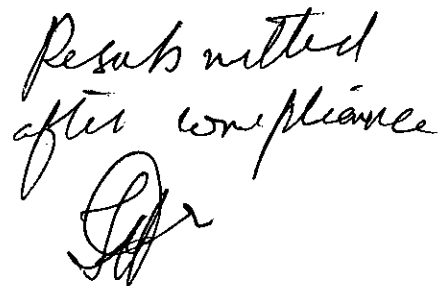 Resubmitted
after compliance